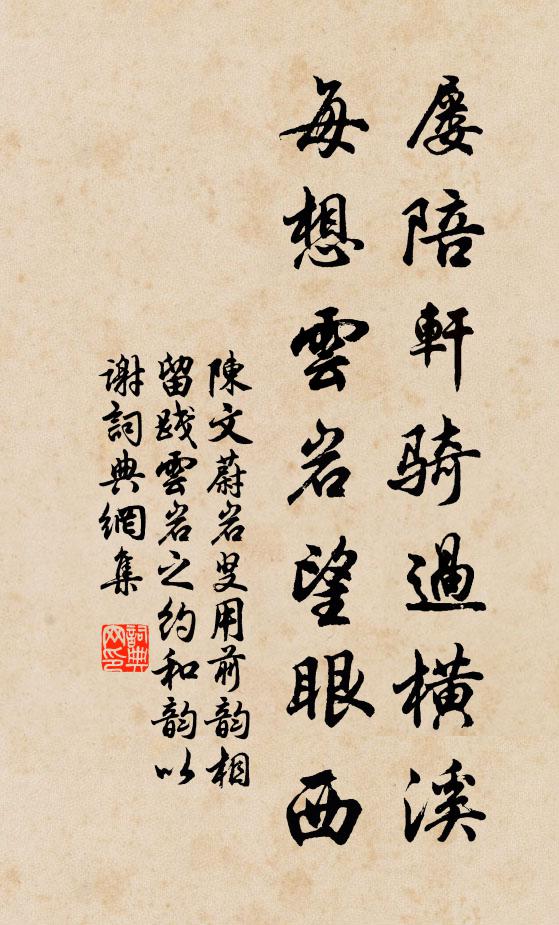 屡陪軒騎過橫溪
每想雲岩望眼西
陳文蔚岩叟用前韵相
留踐雲岩之約和韵以
謝詞典網集
詞典網印